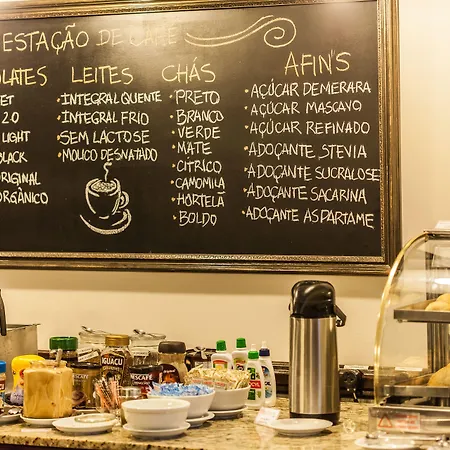 ESTAÇÃO DE CAFÉ
OLATES
ET
2.0
LIGHT
BLACK
ORIGINAL
ORGÂNICO
LEITES
•INTEGRAL QUENTE
•INTEGRAL FRIO
•SEM LACTOSE
•MOLICO DESNATADO
CHÁS
•PRETO
•BRANCO
•VERDE
•MATE
•CÍTRICO
•CAMOMILA
•HORTELÃ
•BOLDO
AFIN'S
•AÇÚCAR DEMERARA
•AÇÚCAR MASCAVO
•AÇÚCAR REFINADO
•ADOÇANTE STEVIA
•ADOÇANTE SUCRALOSE
•ADOÇANTE SACARINA
•ADOÇANTE ASPARTAME
IGUAÇU
NESCAFÉ